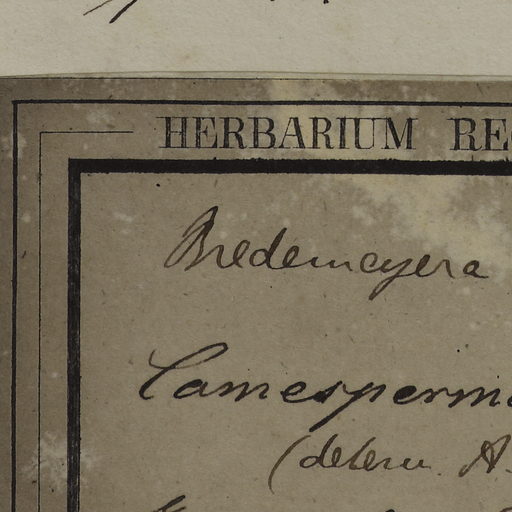 HERBARIUM RE
Bredemeyera
Comesperma
(determ. A.